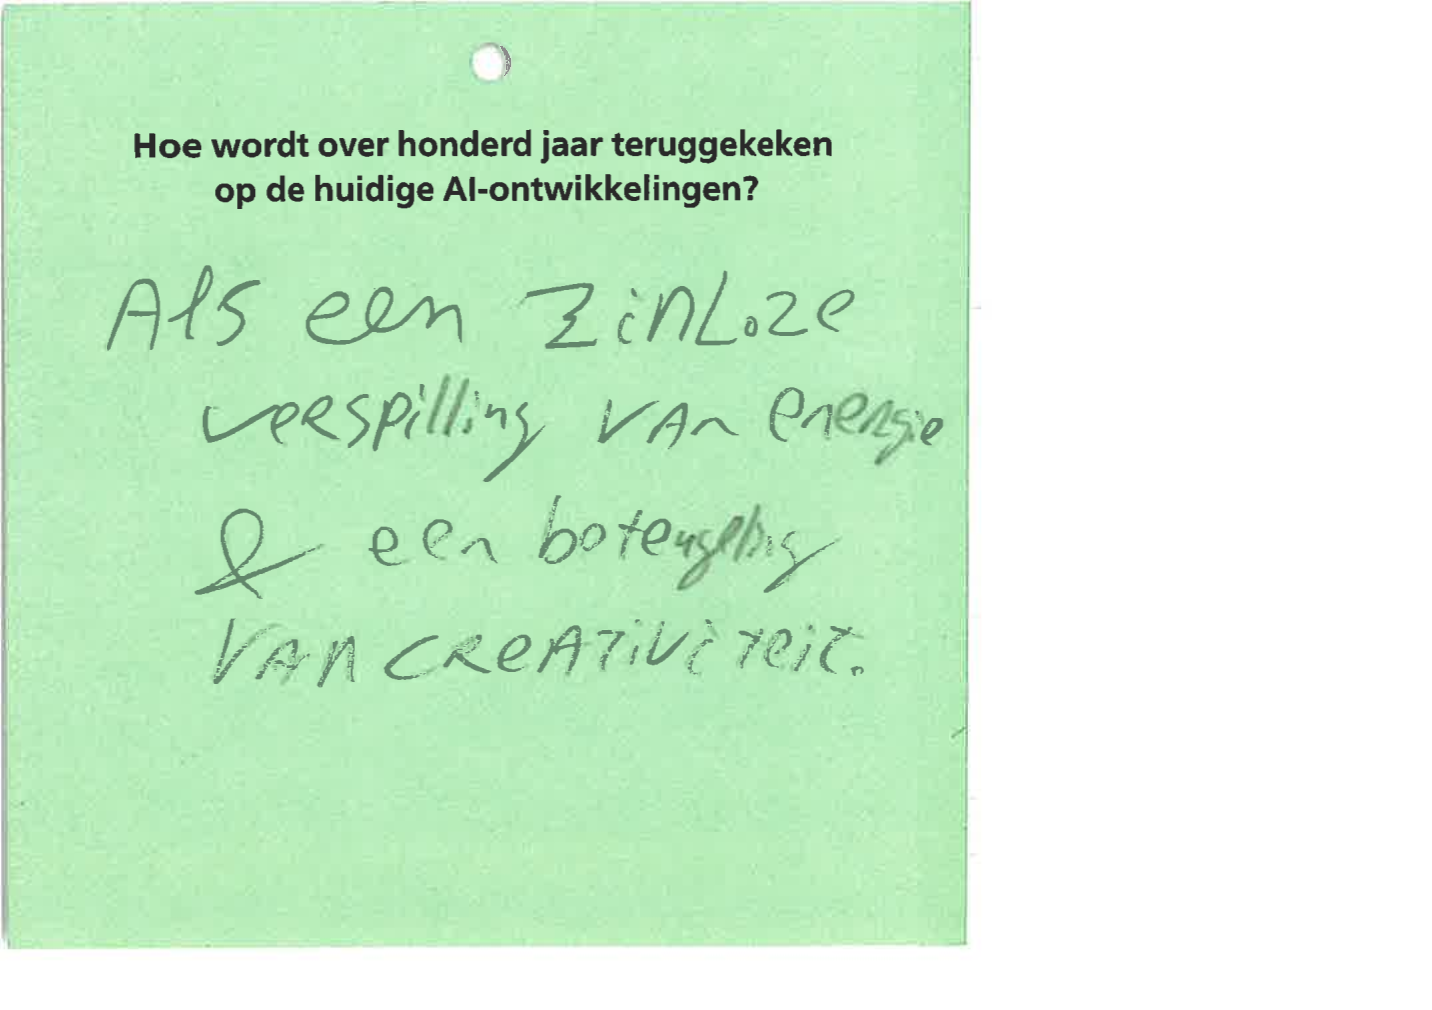 Hoe wordt over honderd jaar teruggekeken
op de huidige AI-ontwikkelingen?
Als een zinloze
verspilling van energie
& een
van creativiteit.